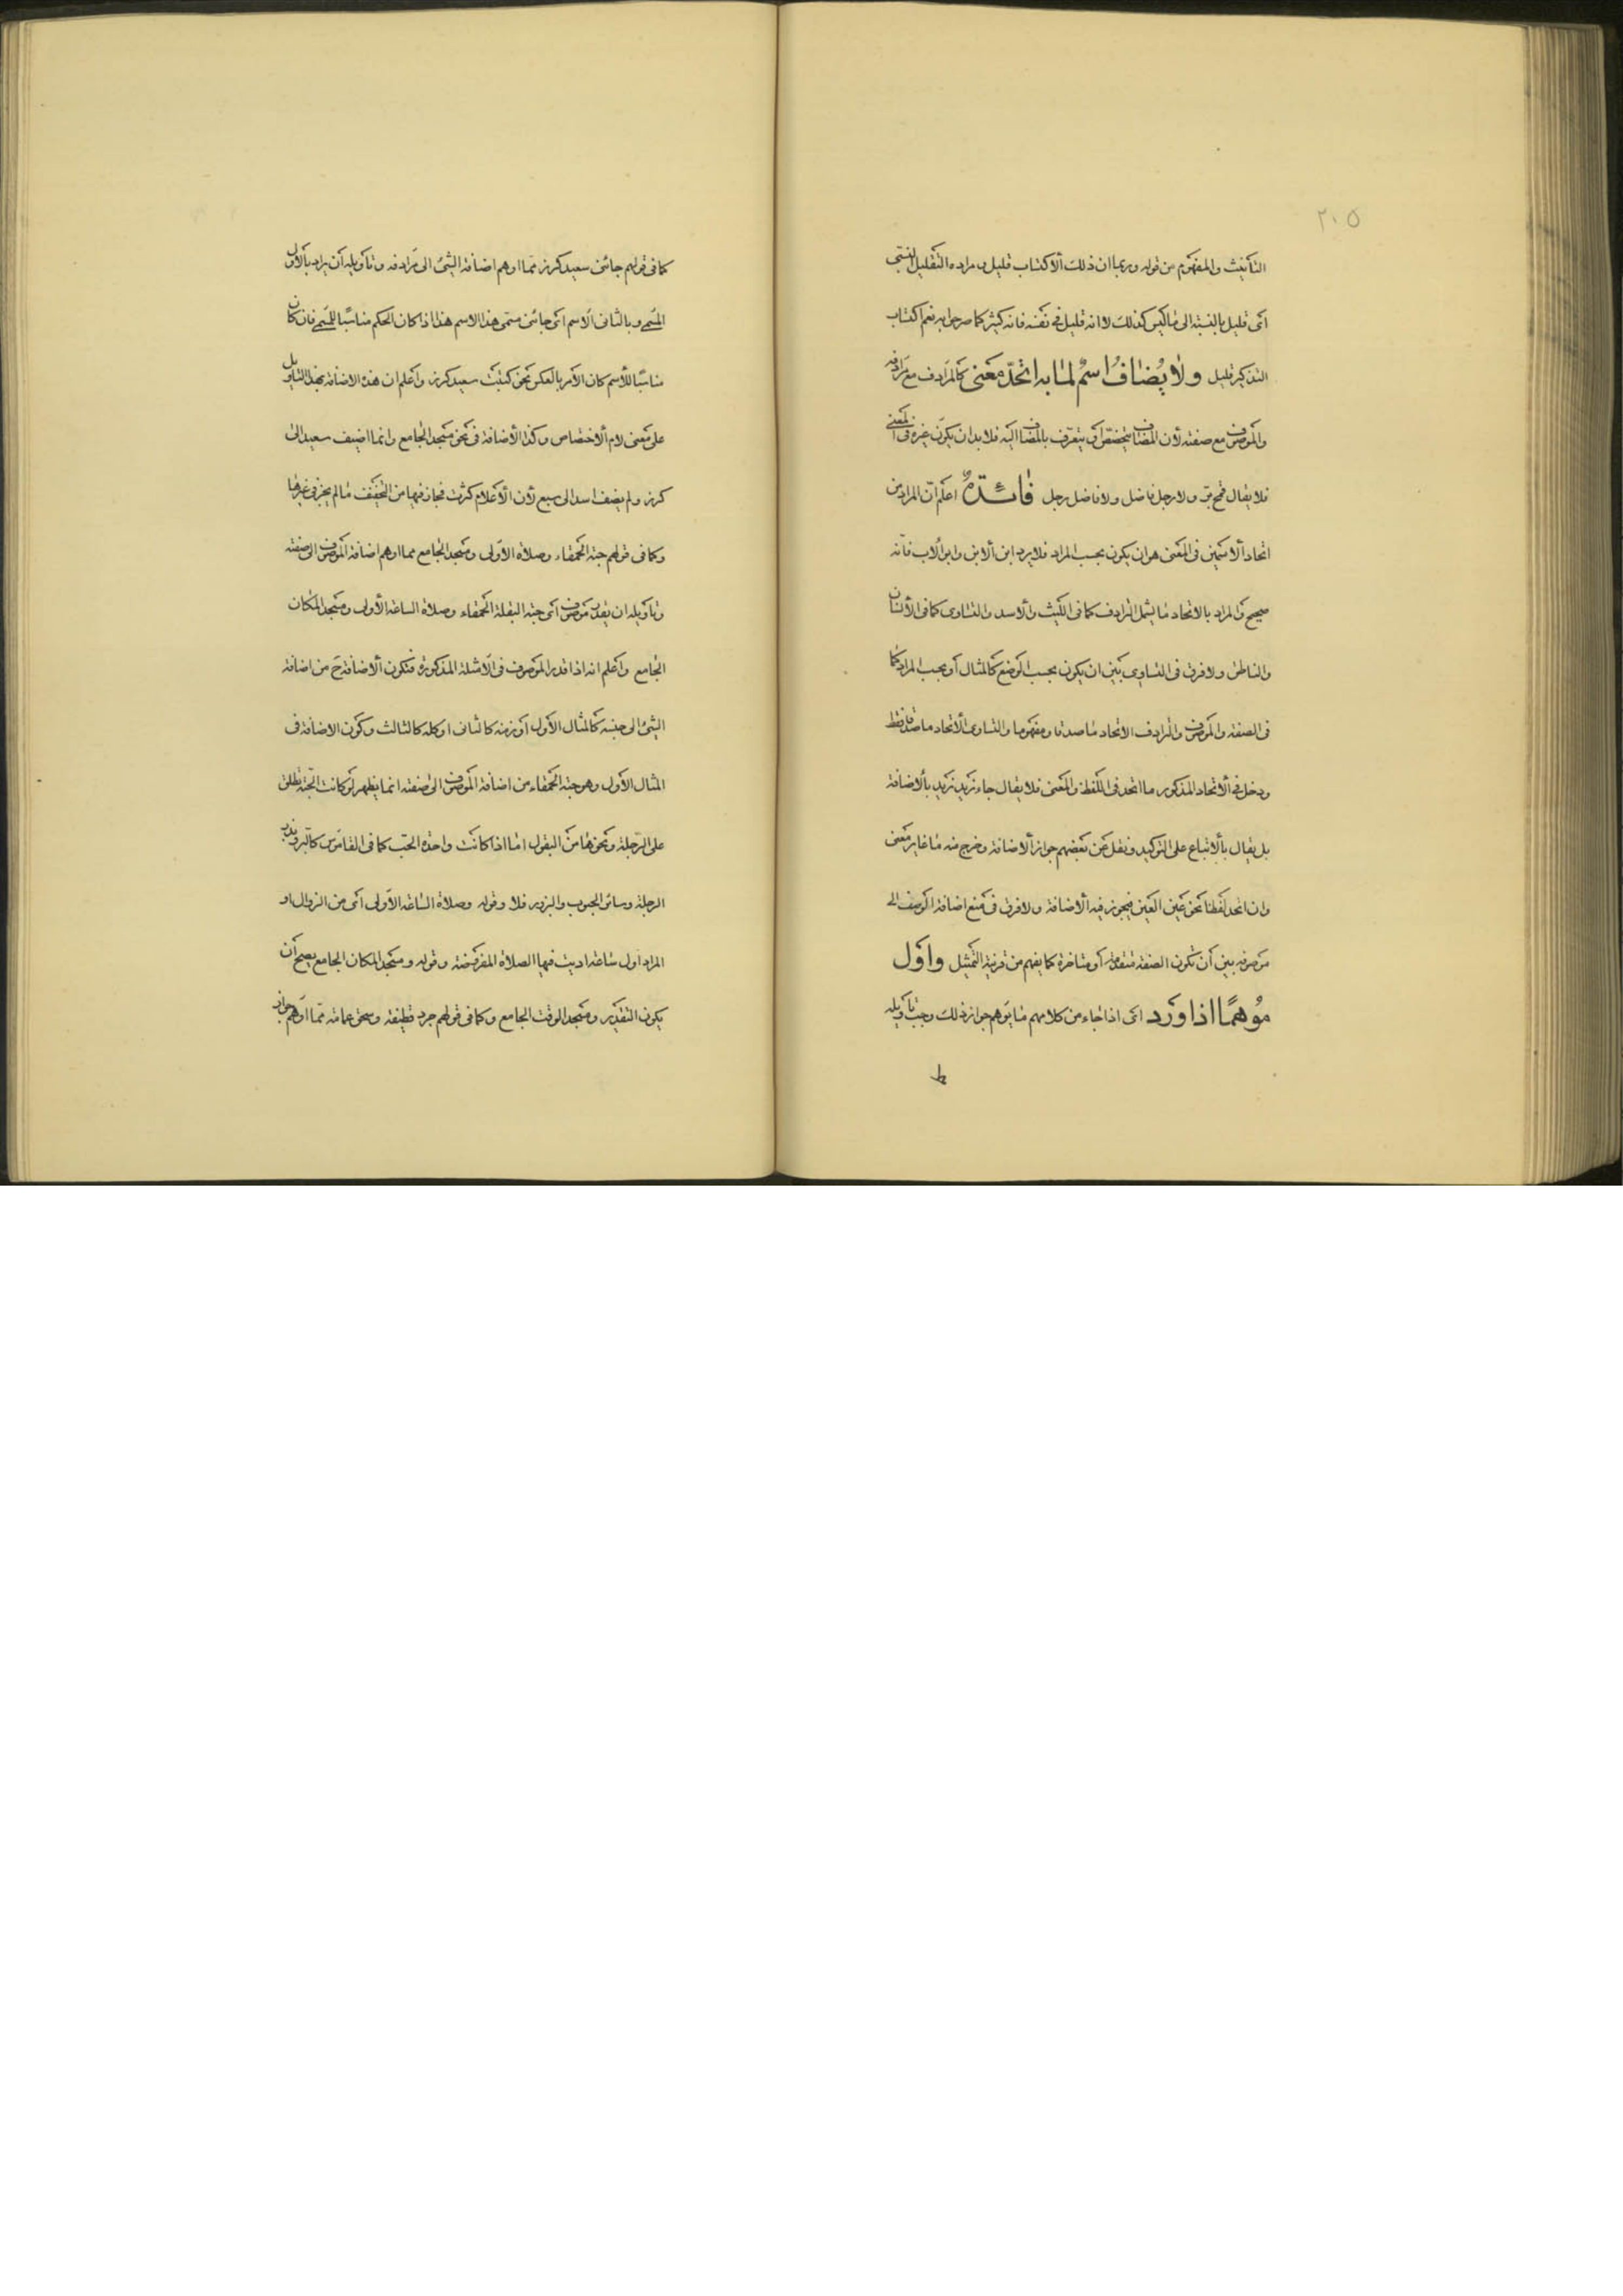 ٢٠٥
التأنيث والمفهوم من قوله وربما ان ذلك ألاكتساب قليل مراده التقليل النسبى
اى قليل بالنسبة الى ما ليس كذلك لا انه قليل فى نفسه فانه كثير كما صرحوا به نعم اكتساب
التذكير قليل ولا يُضافُ اسمٌ لما به اتحدّ معنى كالمرادف مع مرادفه
والموصوف مع صفته لأن المضاف يتخصص او يتعرف بالمضاف اليه فلا بد ان يكون غيره فى المعنى
فلا يقال قمح بر ولا رجل فاضل ولا فاضل رجل فائدةٌ اعلم ان المراد من
اتحاد ألاسمين فى المعنى هو ان يكون بحسب المراد فلا يرد ابن ألابن وابو ألاب فانه
صحيح والمراد بالاتحاد ما يشمل الترادف كما فى الليث وألاسد والتساوى كما فى الأنسان
والناطق ولا فرق فى التساوى بين ان يكون بحسب الوضع كالمثال أو بحسب المراد كما
فى الصفة والموصوف والترادف الاتحاد ماصدقا ومفهوما والتساوى ألاتحاد ماصدقا فقط
ودخل فى ألاتحاد المذكور ما اتحد فى اللفظ والمعنى فلا يقال جاء زيد زيد بألاضافة
بل يقال بألاتباع على التوكيد ونقل عن بعضهم جواز ألاضافة وخرج منه ما غاير معنى
وان اتحد لفظا نحو عين العين فيجوز فيه ألاضافة ولا فرق فى منع اضافة الوصف الى
موصوفه بين أن تكون الصفة متقدمة أو متاخرة كما يفهم من قرينة التمثيل واوّل
مُوهمًا اذا وَرَد اى اذا جاء من كلامهم ما يوهم جواز ذلك وجب تأويله
كما فى قولهم جائنى سعيد كرز مما اوهم اضافة الشئ الى مرادفه وتأويله أن يراد بألاول
المسمى وبالثانى ألاسم اى جائنى مسمى هذا الاسم هذا اذا كان الحكم مناسبًا للمسمى فان كان
مناسبًا للأسم كان الأمر بالعكس نحو كتبت سعيد كرز واعلم ان هذه الاضافة بهذا التاويل
على معنى لام ألاختصاص وكذا الأضافة فى نحو مسجد الجامع وانما اضيف سعيد الى
كرز ولم يضف اسد الى سبع لأن ألاعلام كثرت فجاز فيها من التخفيف ما لم يجز فى غيرها
وكما فى قولهم حبة الحمقاء وصلاة الاولى ومسجد الجامع مما اوهم اضافة الموصوف الى صفته
وتأويله ان يقدر موصوف اى حبة البقلة الحمقاء وصلاة الساعة الأولى ومسجد المكان
الجامع واعلم انه اذا قدر الموصوف فى ألامثلة المذكورة فتكون ألاضافة ح من اضافة
الشئ الى جنسه كالمثال الأول أو زمنه كالثانى او كله كالثالث وكون الاضافة فى
المثال الأول وهو حبة الحمقاء من اضافة الموصوف الى صفته انما يظهر لو كانت الحبة تطلق
على الرجلة ونحوها من البقول اما اذا كانت واحدة الحب كما فى القاموس كالبر وبذر
الرجلة وسائر الحبوب والبزور فلا وقوله وصلاة الساعة الأولى اى من الزوال او
المراد اول ساعة اديت فيها الصلاة المفروضة وقوله ومسجد المكان الجامع يصح أن
يكون التقدير ومسجد الوقت الجامع وكما فى قولهم جرد قطيفة وسحق عمامة مما اوهم جواز